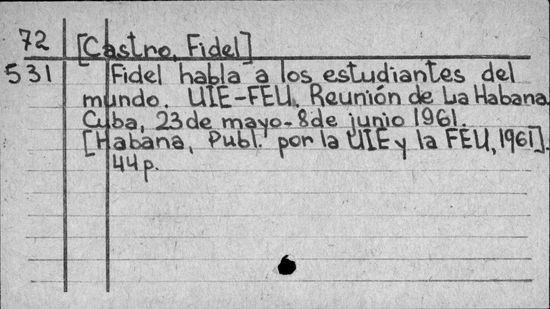 72 [Castro, Fidel]
531 Fidel habla a los estudiantes del
mundo. UIE-FEU. Reunión de La Habana
Cuba, 23 de mayo-8 de junio 1961.
[Habana, Publ. por la UIE y la FEU, 1961].
44 p.